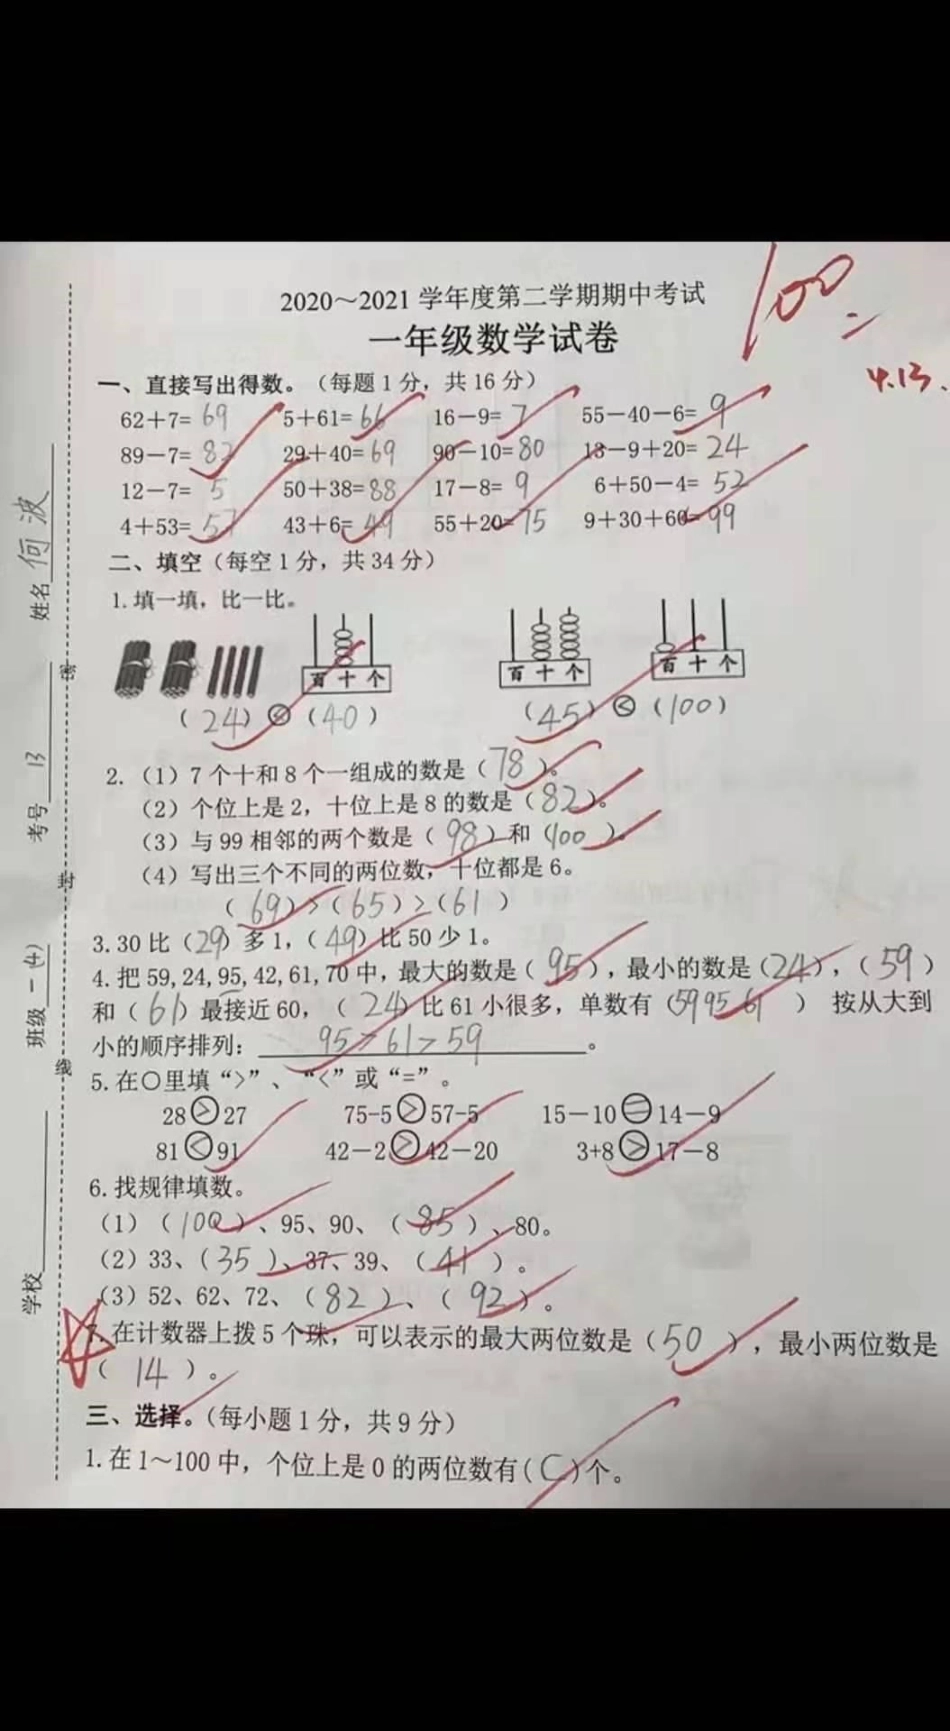 2020～2021 学年度第二学期期中考试
100
一年级数学试卷
4.13.
一、直接写出得数。（每题 1 分，共 16 分）
62＋7= 69 5＋61= 66 16－9= 7 55－40－6= 9
89－7= 82 29＋40= 69 90－10= 80 13－9＋20= 24
12－7= 5 50＋38= 88 17－8= 9 6＋50－4= 52
4＋53= 57 43＋6= 49 55＋20= 75 9＋30＋60= 99
二、填空（每空 1 分，共 34 分）
1. 填一填，比一比。
百 十 个 百 十 个 百 十 个
（24）<（40） （45）<（100）
2.（1）7 个十和 8 个一组成的数是（78）。
（2）个位上是 2，十位上是 8 的数是（82）。
（3）与 99 相邻的两个数是（98）和（100）。
（4）写出三个不同的两位数，十位都是 6。
（69）>（65）>（61）
3. 30 比（29）多 1，（49）比 50 少 1。
4. 把 59,24,95,42,61,70 中，最大的数是（95），最小的数是（24），（59）
和（61）最接近 60，（24）比 61 小很多，单数有（59 95 61）按从大到
小的顺序排列：95>61>59。
5. 在○里填“>”、“<”或“=”。
28 > 27 75-5 > 57-5 15－10 = 14－9
81 < 91 42－2 > 42－20 3+8 > 17－8
6. 找规律填数。
（1）（100）、95、90、（85）、80。
（2）33、（35）、37、39、（41）。
（3）52、62、72、（82）、（92）。
7. 在计数器上拨 5 个珠，可以表示的最大两位数是（50），最小两位数是
（14）。
三、选择。（每小题 1 分，共 9 分）
1. 在 1～100 中，个位上是 0 的两位数有（C）个。
学校
班级 一(4)
考号 13
姓名 何波
密
封
线